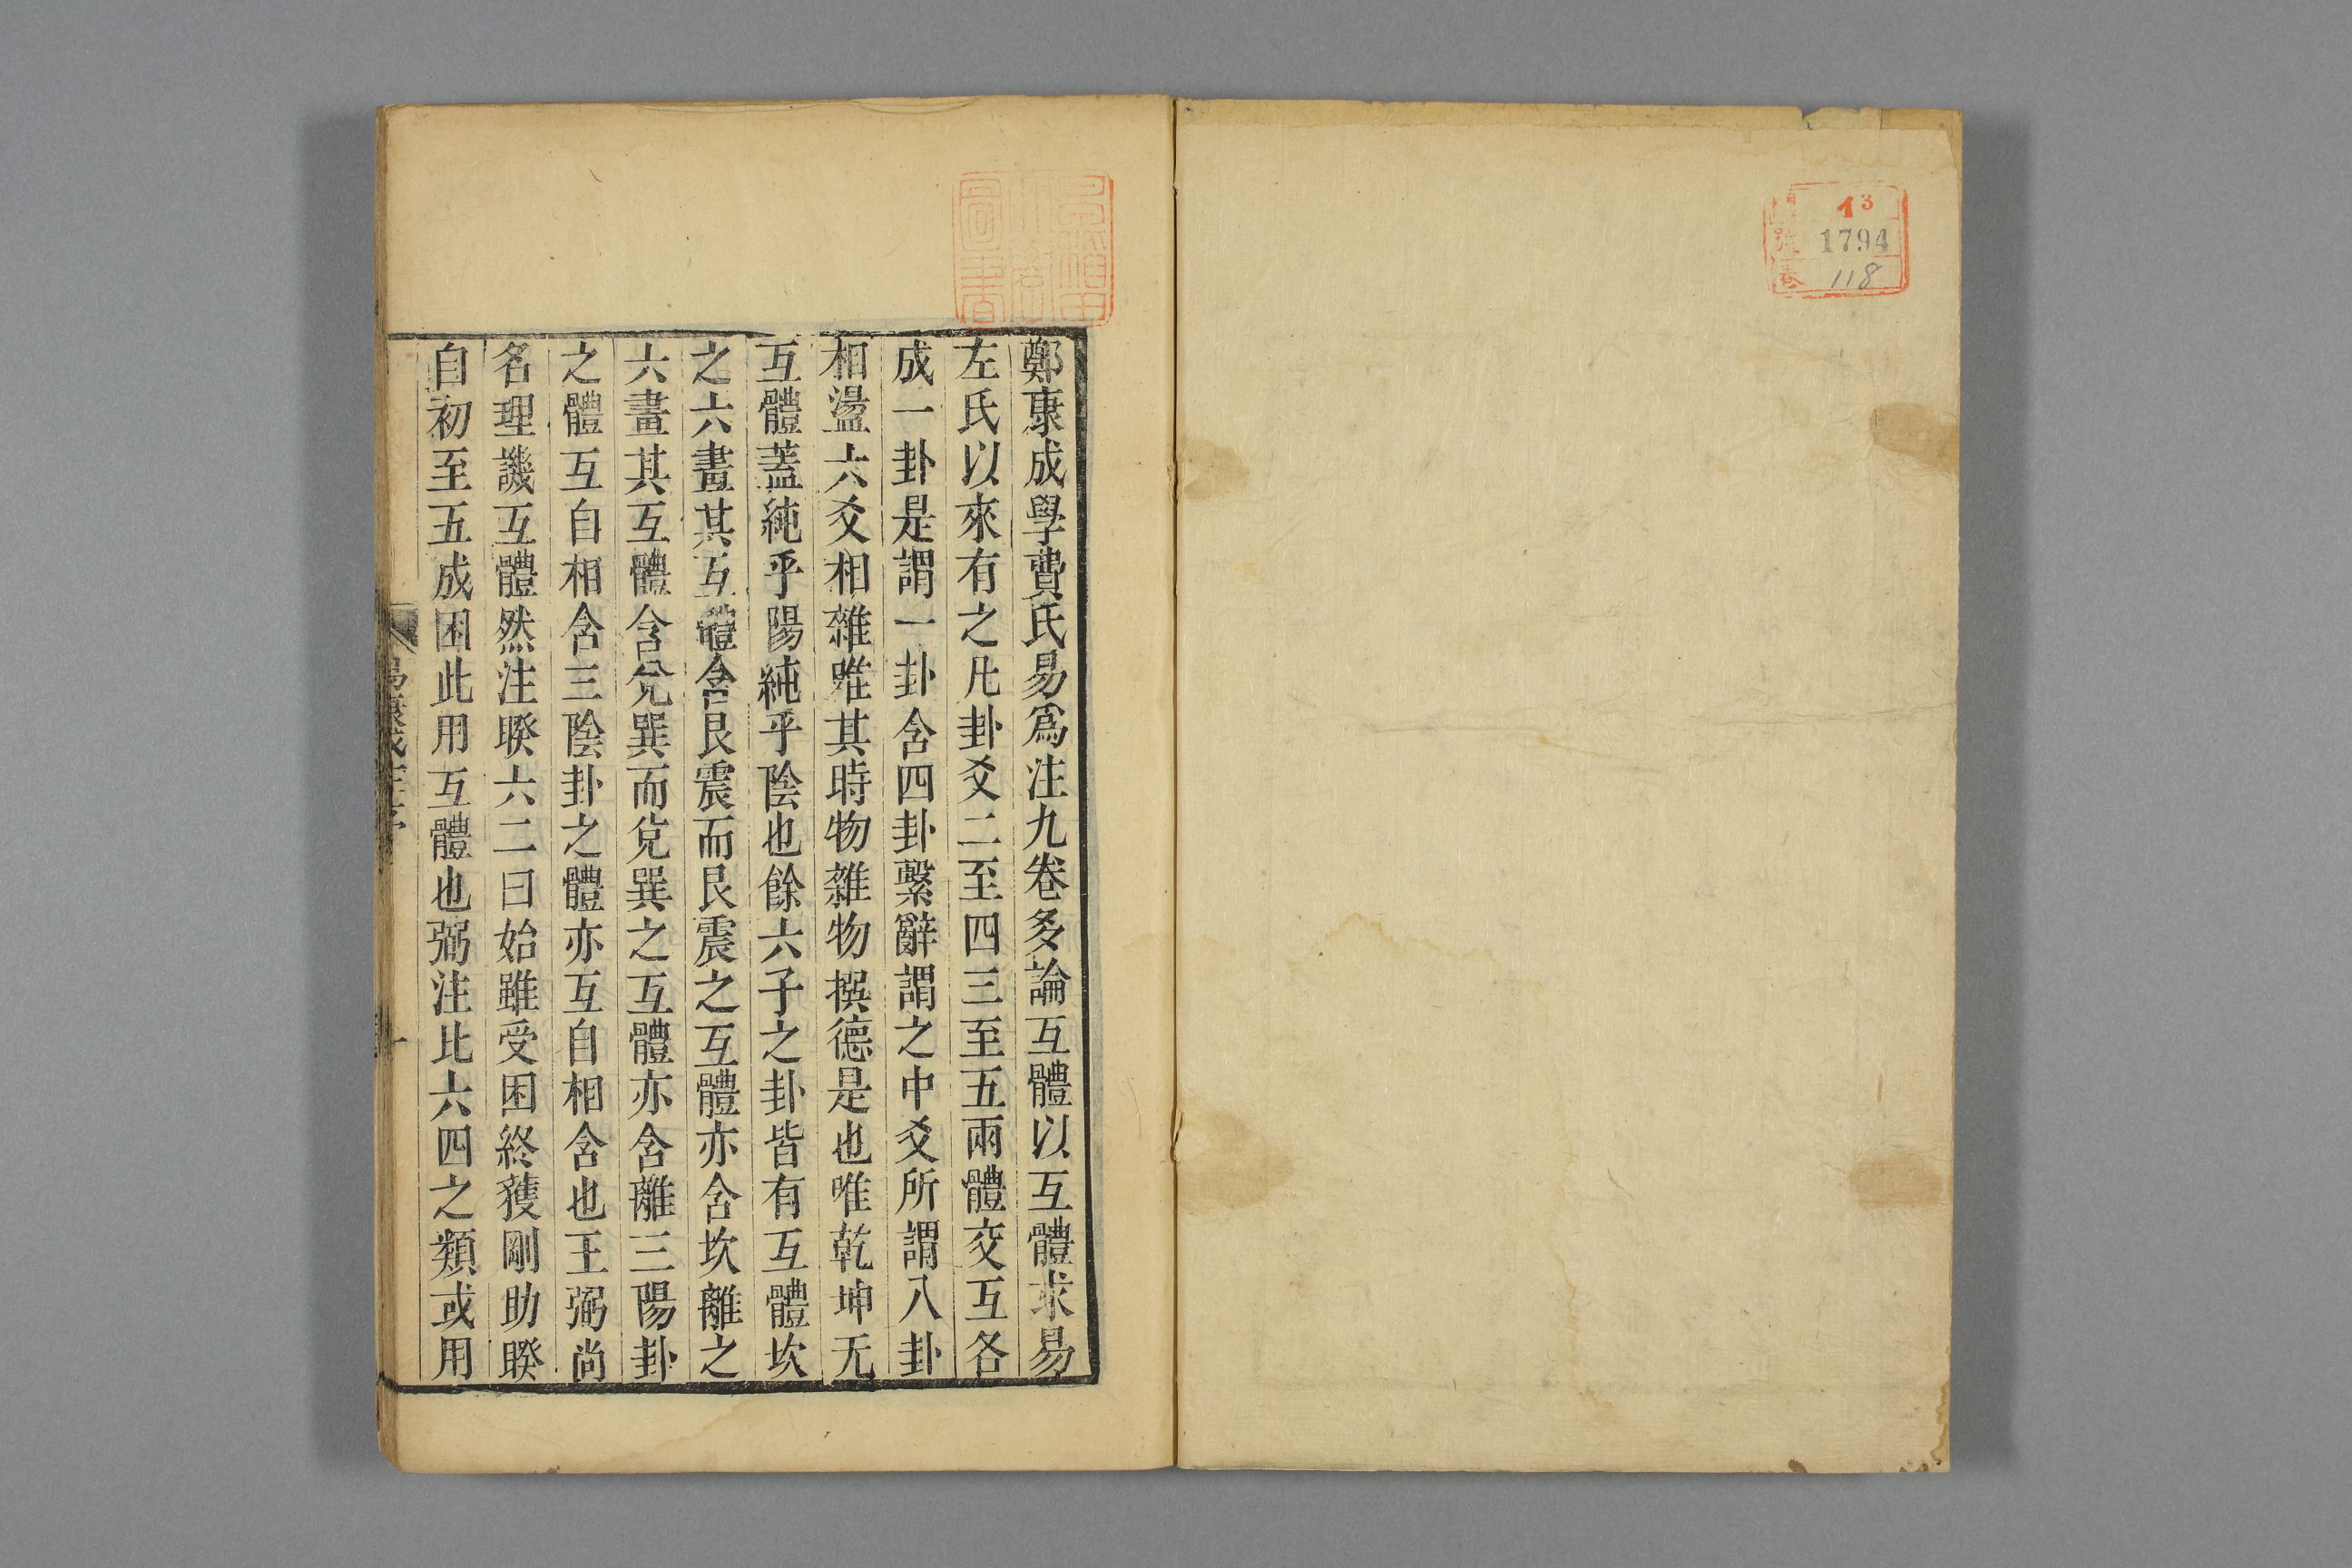 門 13
號 1794
卷 118
鄭康成學費氏易爲注九卷多論互體以互體求易
左氏以來有之凡卦爻二至四三至五兩體交互各
成一卦是謂一卦含四卦繫辭謂之中爻所謂八卦
相盪六爻相雜唯其時物雜物撰德是也唯乾坤无
互體蓋純乎陽純乎陰也餘六子之卦皆有互體坎
之六畫其互體含艮震而艮震之互體亦含坎離之
六畫其互體含兌巽而兌巽之互體亦含離三陽卦
之體互自相含三陰卦之體亦互自相含也王弼尚
名理譏互體然注睽六二曰始雖受困終獲剛助睽
自初至五成困此用互體也弼注比六四之類或用